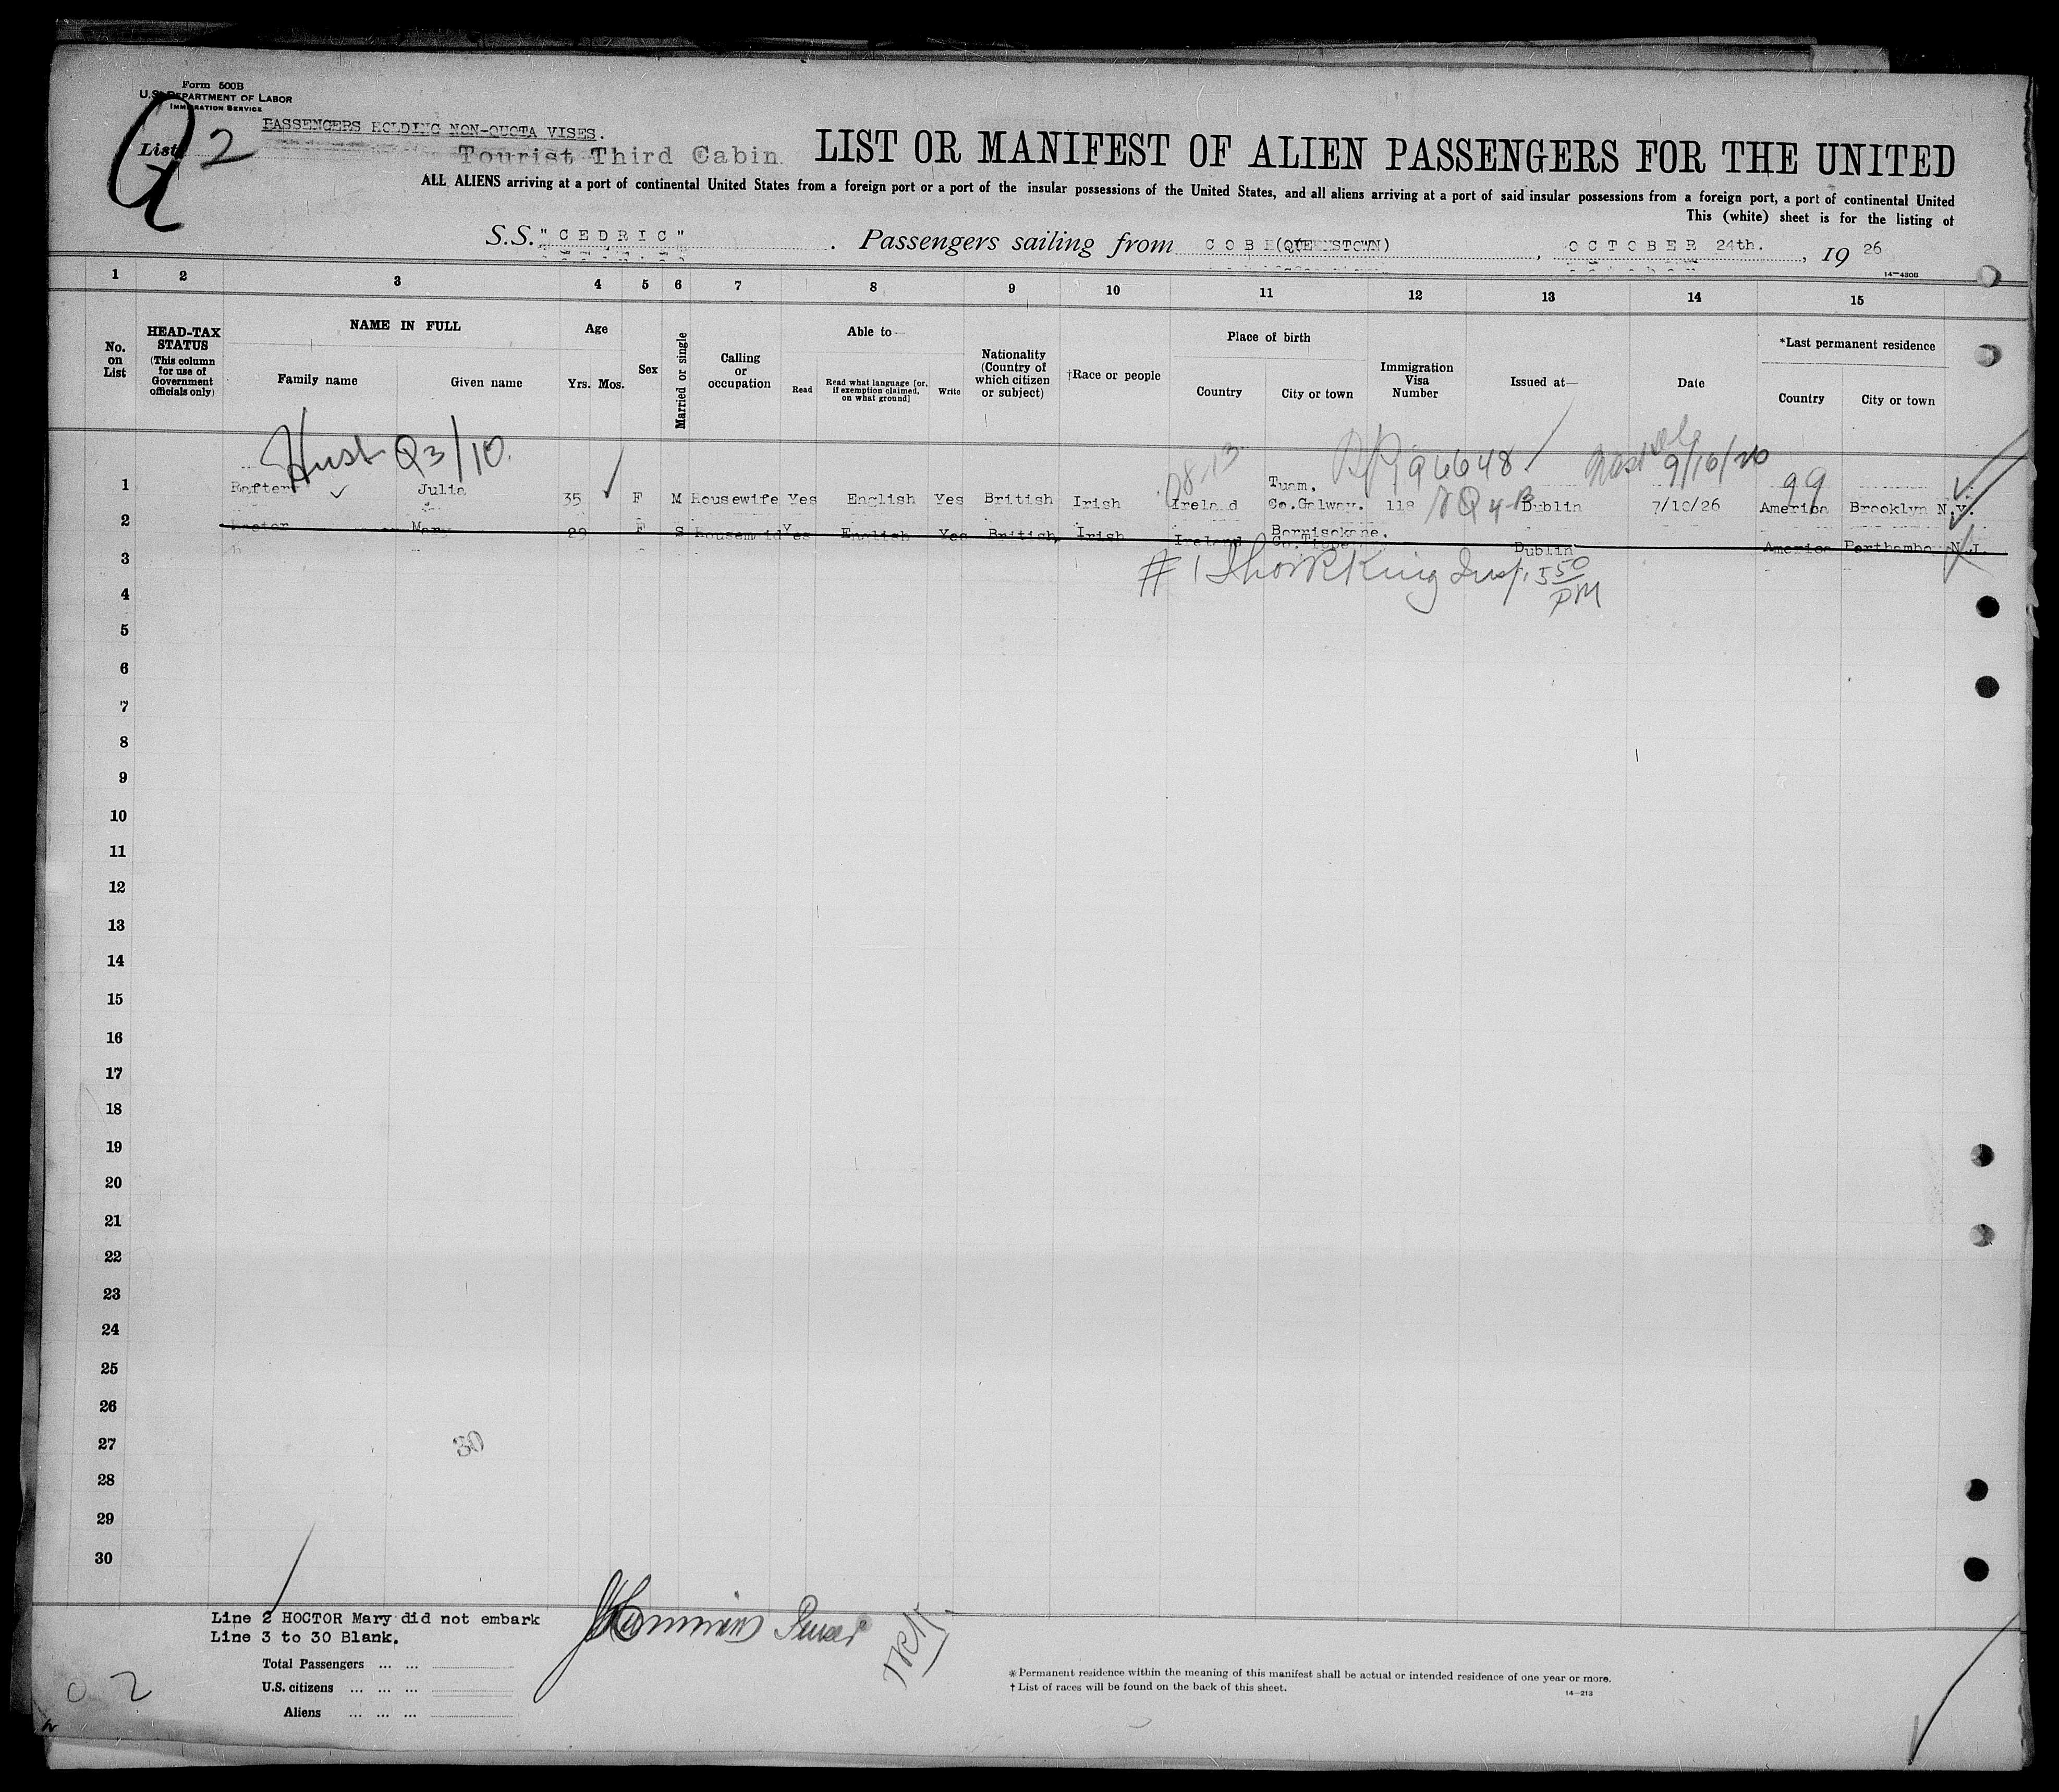 Form 500B
U.S. DEPARTMENT OF LABOR
IMMIGRATION SERVICE
PASSENGERS HOLDING NON-QUOTA VISES.
List 2
Tourist Third Cabin
LIST OR MANIFEST OF ALIEN PASSENGERS FOR THE UNITED
ALL ALIENS arriving at a port of continental United States from a foreign port or a port of the insular possessions of the United States, and all aliens arriving at a port of said insular possessions from a foreign port, a port of continental United
This (white) sheet is for the listing of
S.S. "CEDRIC" . Passengers sailing from COBH (QUEENSTOWN) , OCTOBER 24th. , 19 26
14-4308
1 2 3 4 5 6 7 8 9 10 11 12 13 14 15
No. on List
HEAD-TAX STATUS (This column for use of Government officials only)
NAME IN FULL
Family name
Given name
Age
Yrs. Mos.
Sex
Married or single
Calling or occupation
Able to—
Read
Read what language [or, if exemption claimed, on what ground]
Write
Nationality (Country of which citizen or subject)
†Race or people
Place of birth
Country
City or town
Immigration Visa Number
Issued at—
Date
*Last permanent residence
Country
City or town
Q3/10.
R/P 196648
9/10/26
99
1 Rafter Julia 35 F M Housewife Yes English Yes British Irish Ireland Tuam, Co.Galway. 118 Dublin 7/10/26 America Brooklyn N.Y.
2 Hoctor Mary 29 F S Housemaid Yes English Yes British Irish Ireland Borrisokane, Dublin America Perthamboy N.J.
3
# 1 King Insp. 5 50 PM
4
5
6
7
8
9
10
11
12
13
14
15
16
17
18
19
20
21
22
23
24
25
26
27
30
28
29
30
Line 2 HOCTOR Mary did not embark
Line 3 to 30 Blank.
Purser
Total Passengers ... ...
U.S. citizens ... ... ...
Aliens ... ... ...
0 2
* Permanent residence within the meaning of this manifest shall be actual or intended residence of one year or more.
† List of races will be found on the back of this sheet.
14-213